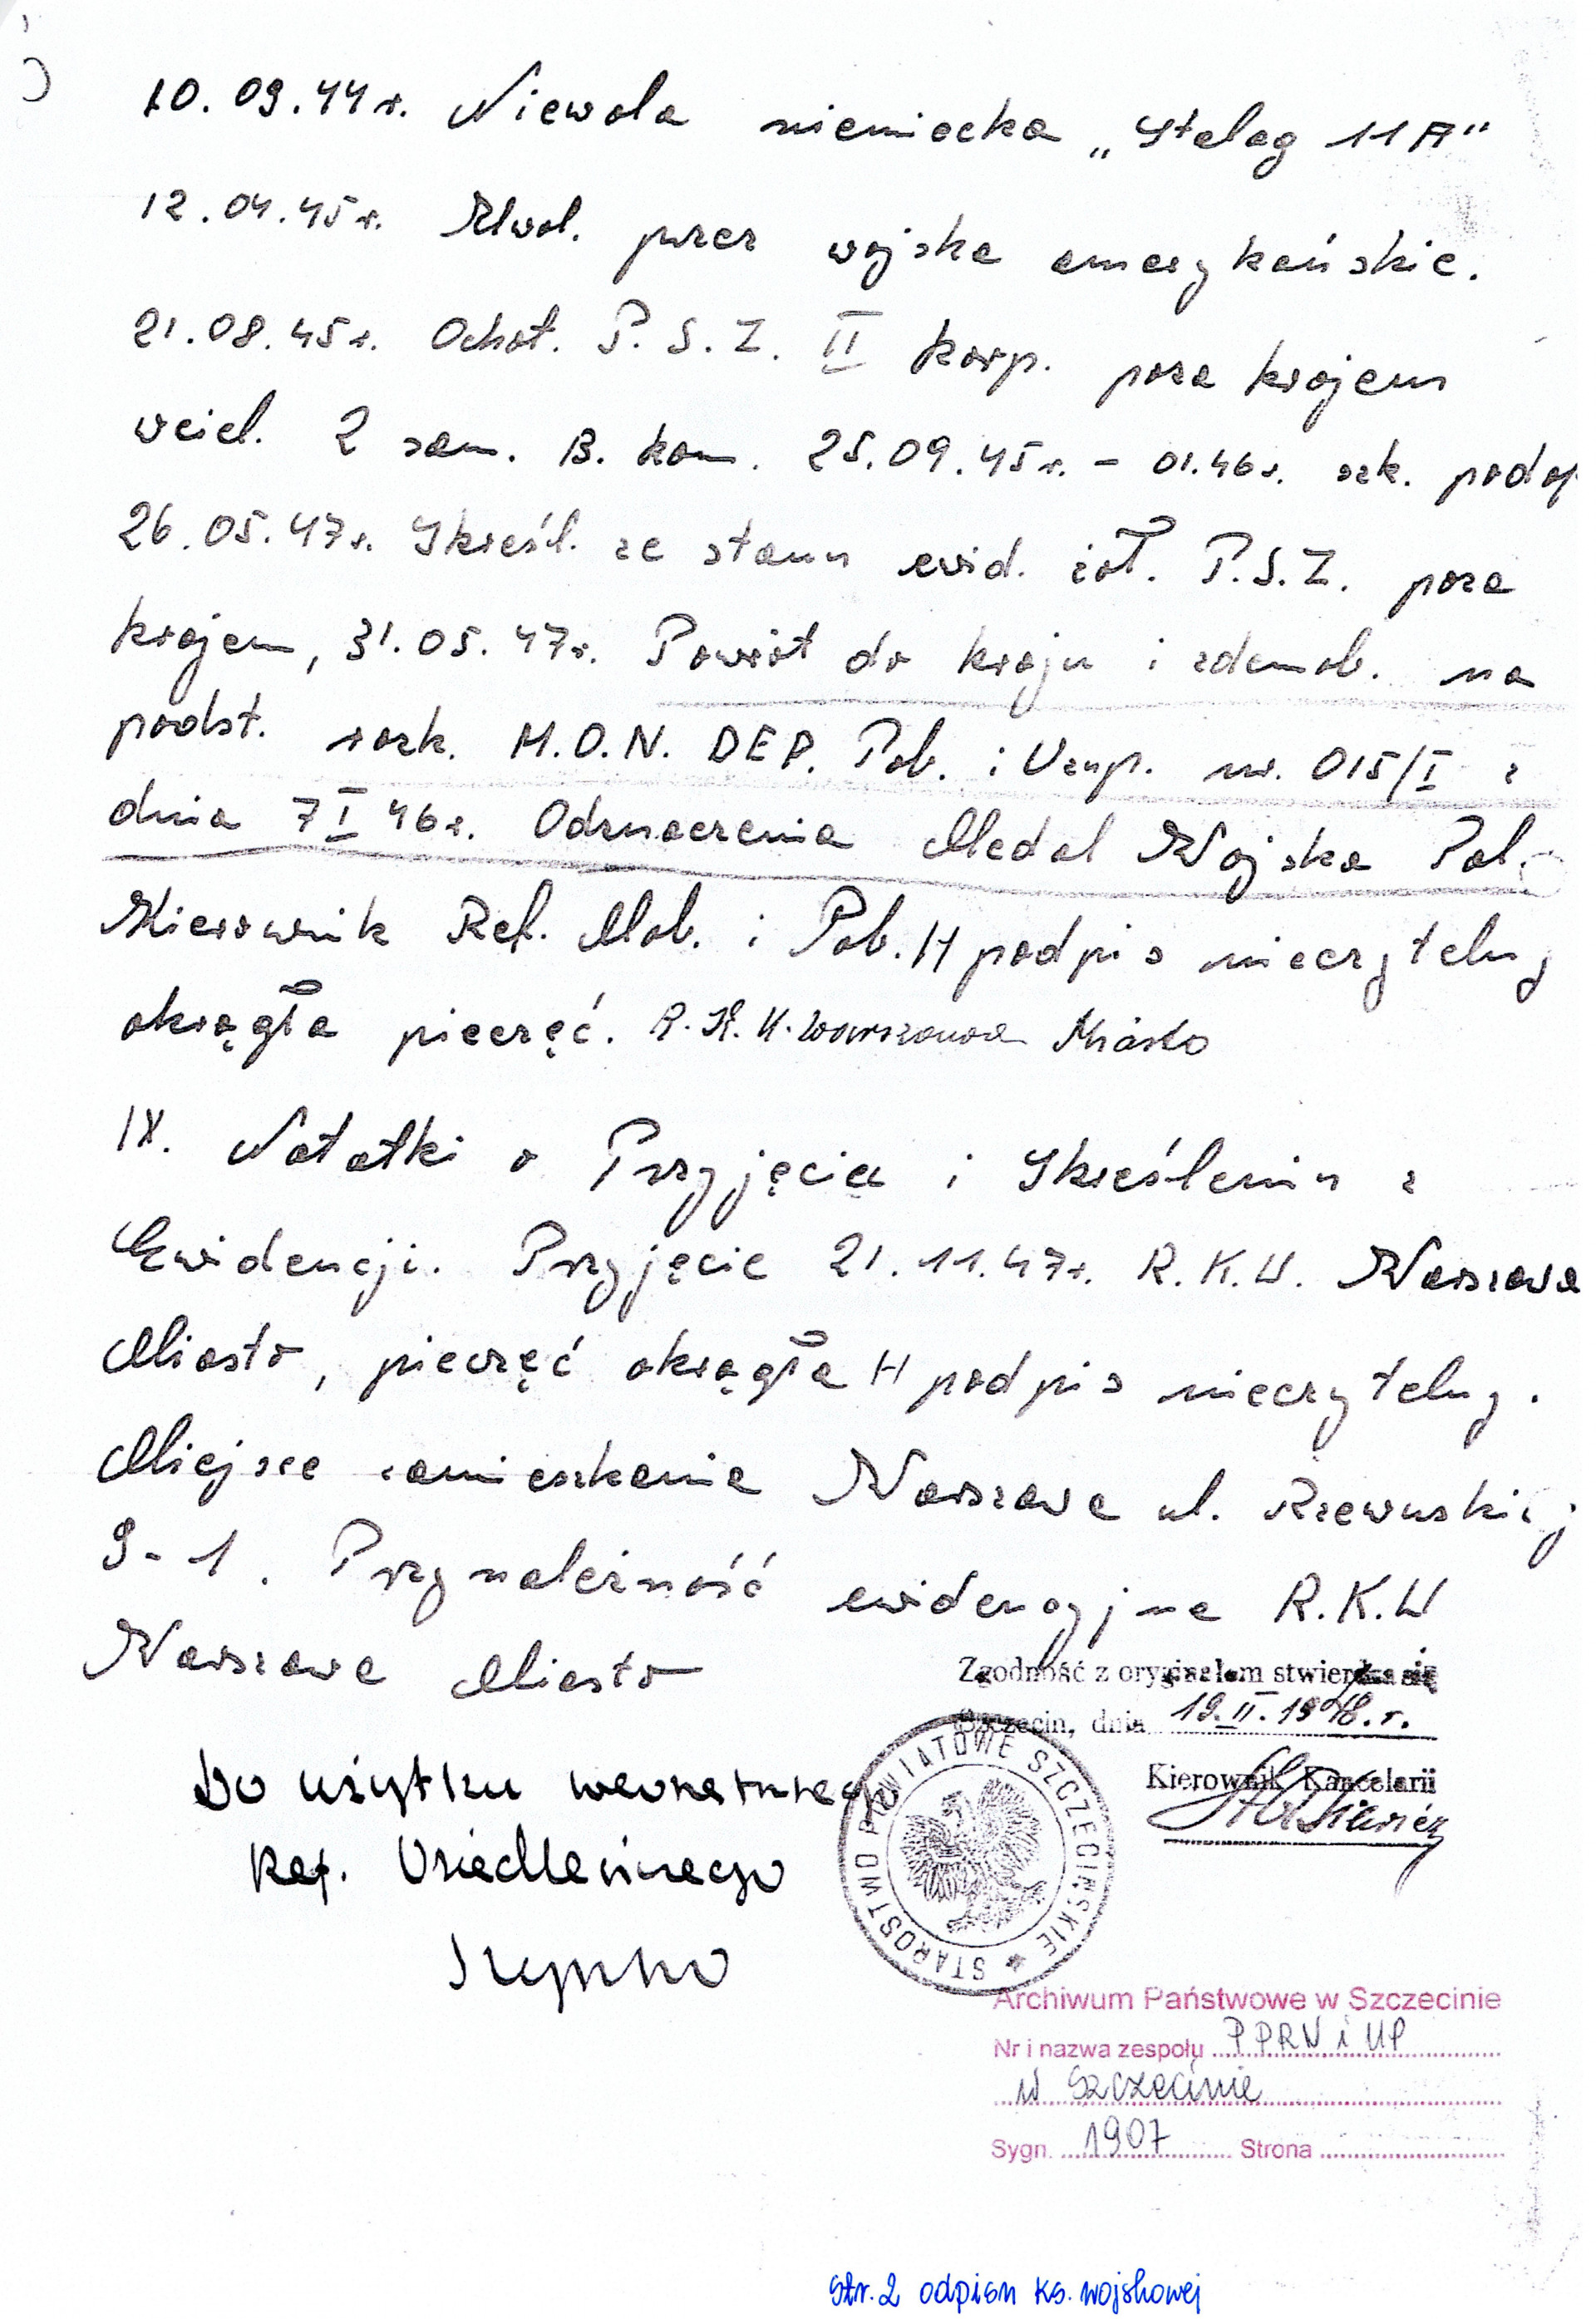 10.09.44r. Niewola niemiecka „Stalag 11A"
12.04.45r. Zwol. przez wojska amerykańskie.
21.08.45r. Ochot. P.S.Z. II Korp. poza krajem
wciel. 2 sam. B. kom. 25.09.45r. - 01.46r. szk. podof
26.05.47r. Skreśl. ze stanu ewid. żoł. P.S.Z. poza
krajem, 31.05.47r. Powrót do kraju i zdemob. na
podst. rozk. M.O.N. DEP. Pob. i Uzup. nr. 015/I z
dnia 7 I 46r. Odznaczenia Medal Wojska Pol.
Kierownik Ref. Mob. i Pob. H podpis nieczytelny
okrągła pieczęć. R.K.U. Warszawa Miasto
IX. Notatki o Przyjęciu i Skreśleniu z
Ewidencji. Przyjęcie 21.11.47r. R.K.U. Warszawa
Miasto, pieczęć okrągła H podpis nieczytelny.
Miejsce zamieszkania Warszawa ul. Rzewuskiej
9-1. Przynależność ewidencyjna R.K.U
Warszawa Miasto
Zgodność z oryginałem stwierdza się
Szczecin, dnia 19.II.1948.r.
Kierownik Kancelarii
Do użytku wewnętrznego
Ref. Osiedleńczego
STAROSTWO POWIATOWE SZCZECIŃSKIE
Archiwum Państwowe w Szczecinie
Nr i nazwa zespołu PPRN i UP
w Szczecinie
Sygn. 1907 Strona
Str. 2 odpisu ks. wojskowej